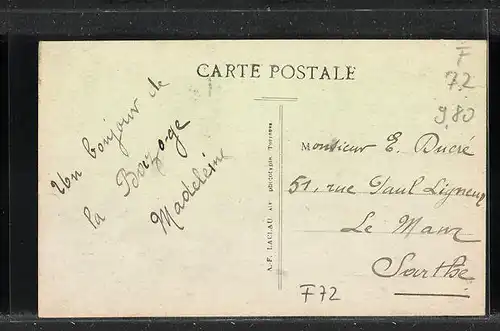 CARTE POSTALE
F
72
980
Un bonjour de
la Bazoge
Madeleine
Monsieur E. Ducré
51, rue Paul Ligneul
Le Mans
Sarthe
F72
A.-F. LACLAU